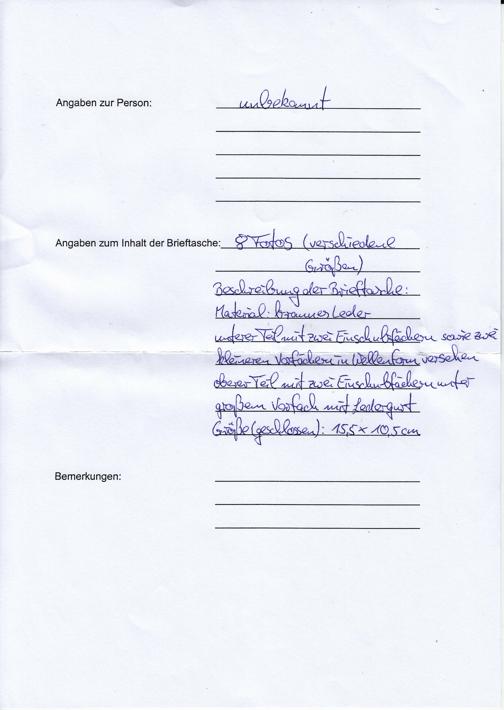 Angaben zur Person: unbekannt
Angaben zum Inhalt der Brieftasche: 8 Fotos (verschiedene
Größen)
Beschreibung der Brieftasche:
Material: braunes Leder
unterer Teil mit zwei Einschubfächern sowie zwei
kleineren Vorfächern in Wellenform versehen
oberer Teil mit zwei Einschubfächern unter
großem Vorfach mit Ledergurt
Größe (geschlossen): 15,5 x 10,5 cm
Bemerkungen: